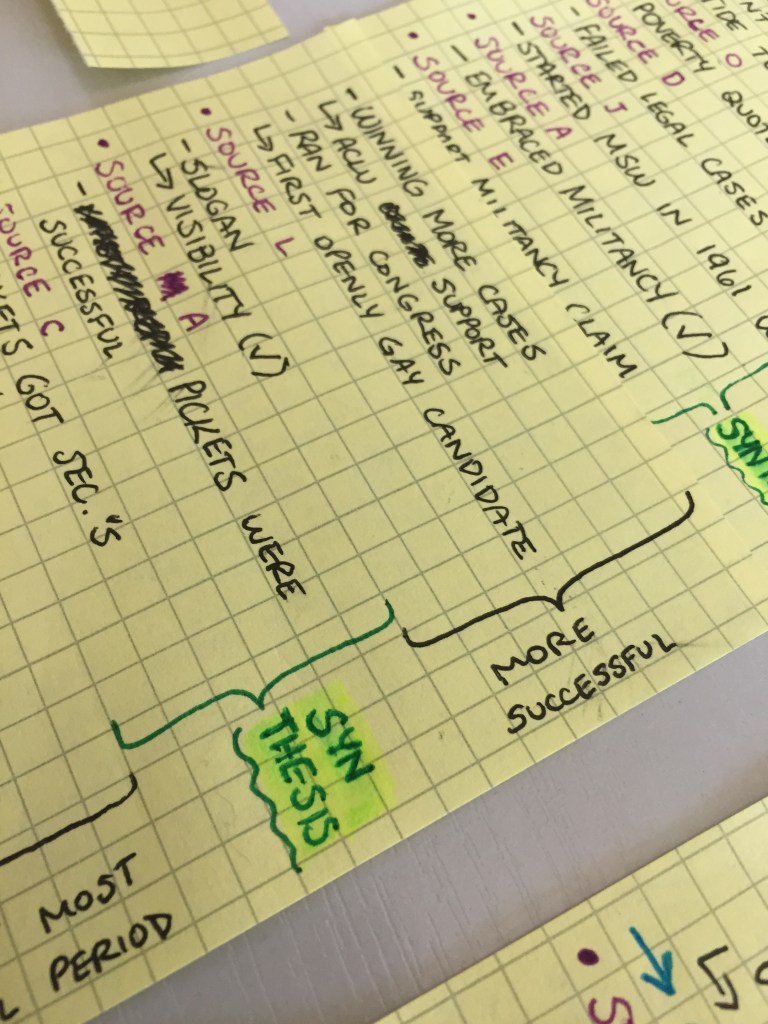 URCE O
POVERTY QUOT
URCE D
- FAILED LEGAL CASES
• SOURCE J
- STARTED MSW IN 1961
• SOURCE A
- EMBRACED MILITANCY (√)
• SOURCE E
- SUPPORT MILITANCY CLAIM
- WINNING MORE CASES
↳ ACLU SUPPORT
- RAN FOR CONGRESS
↳ FIRST OPENLY GAY CANDIDATE
MORE
SUCCESSFUL
• SOURCE L
- SLOGAN
↳ VISIBILITY (√)
• SOURCE A
- PICKETS WERE
SUCCESSFUL
SYN
THESIS
SOURCE C
KETS GOT SEC.'S
MOST
PERIOD
SYN